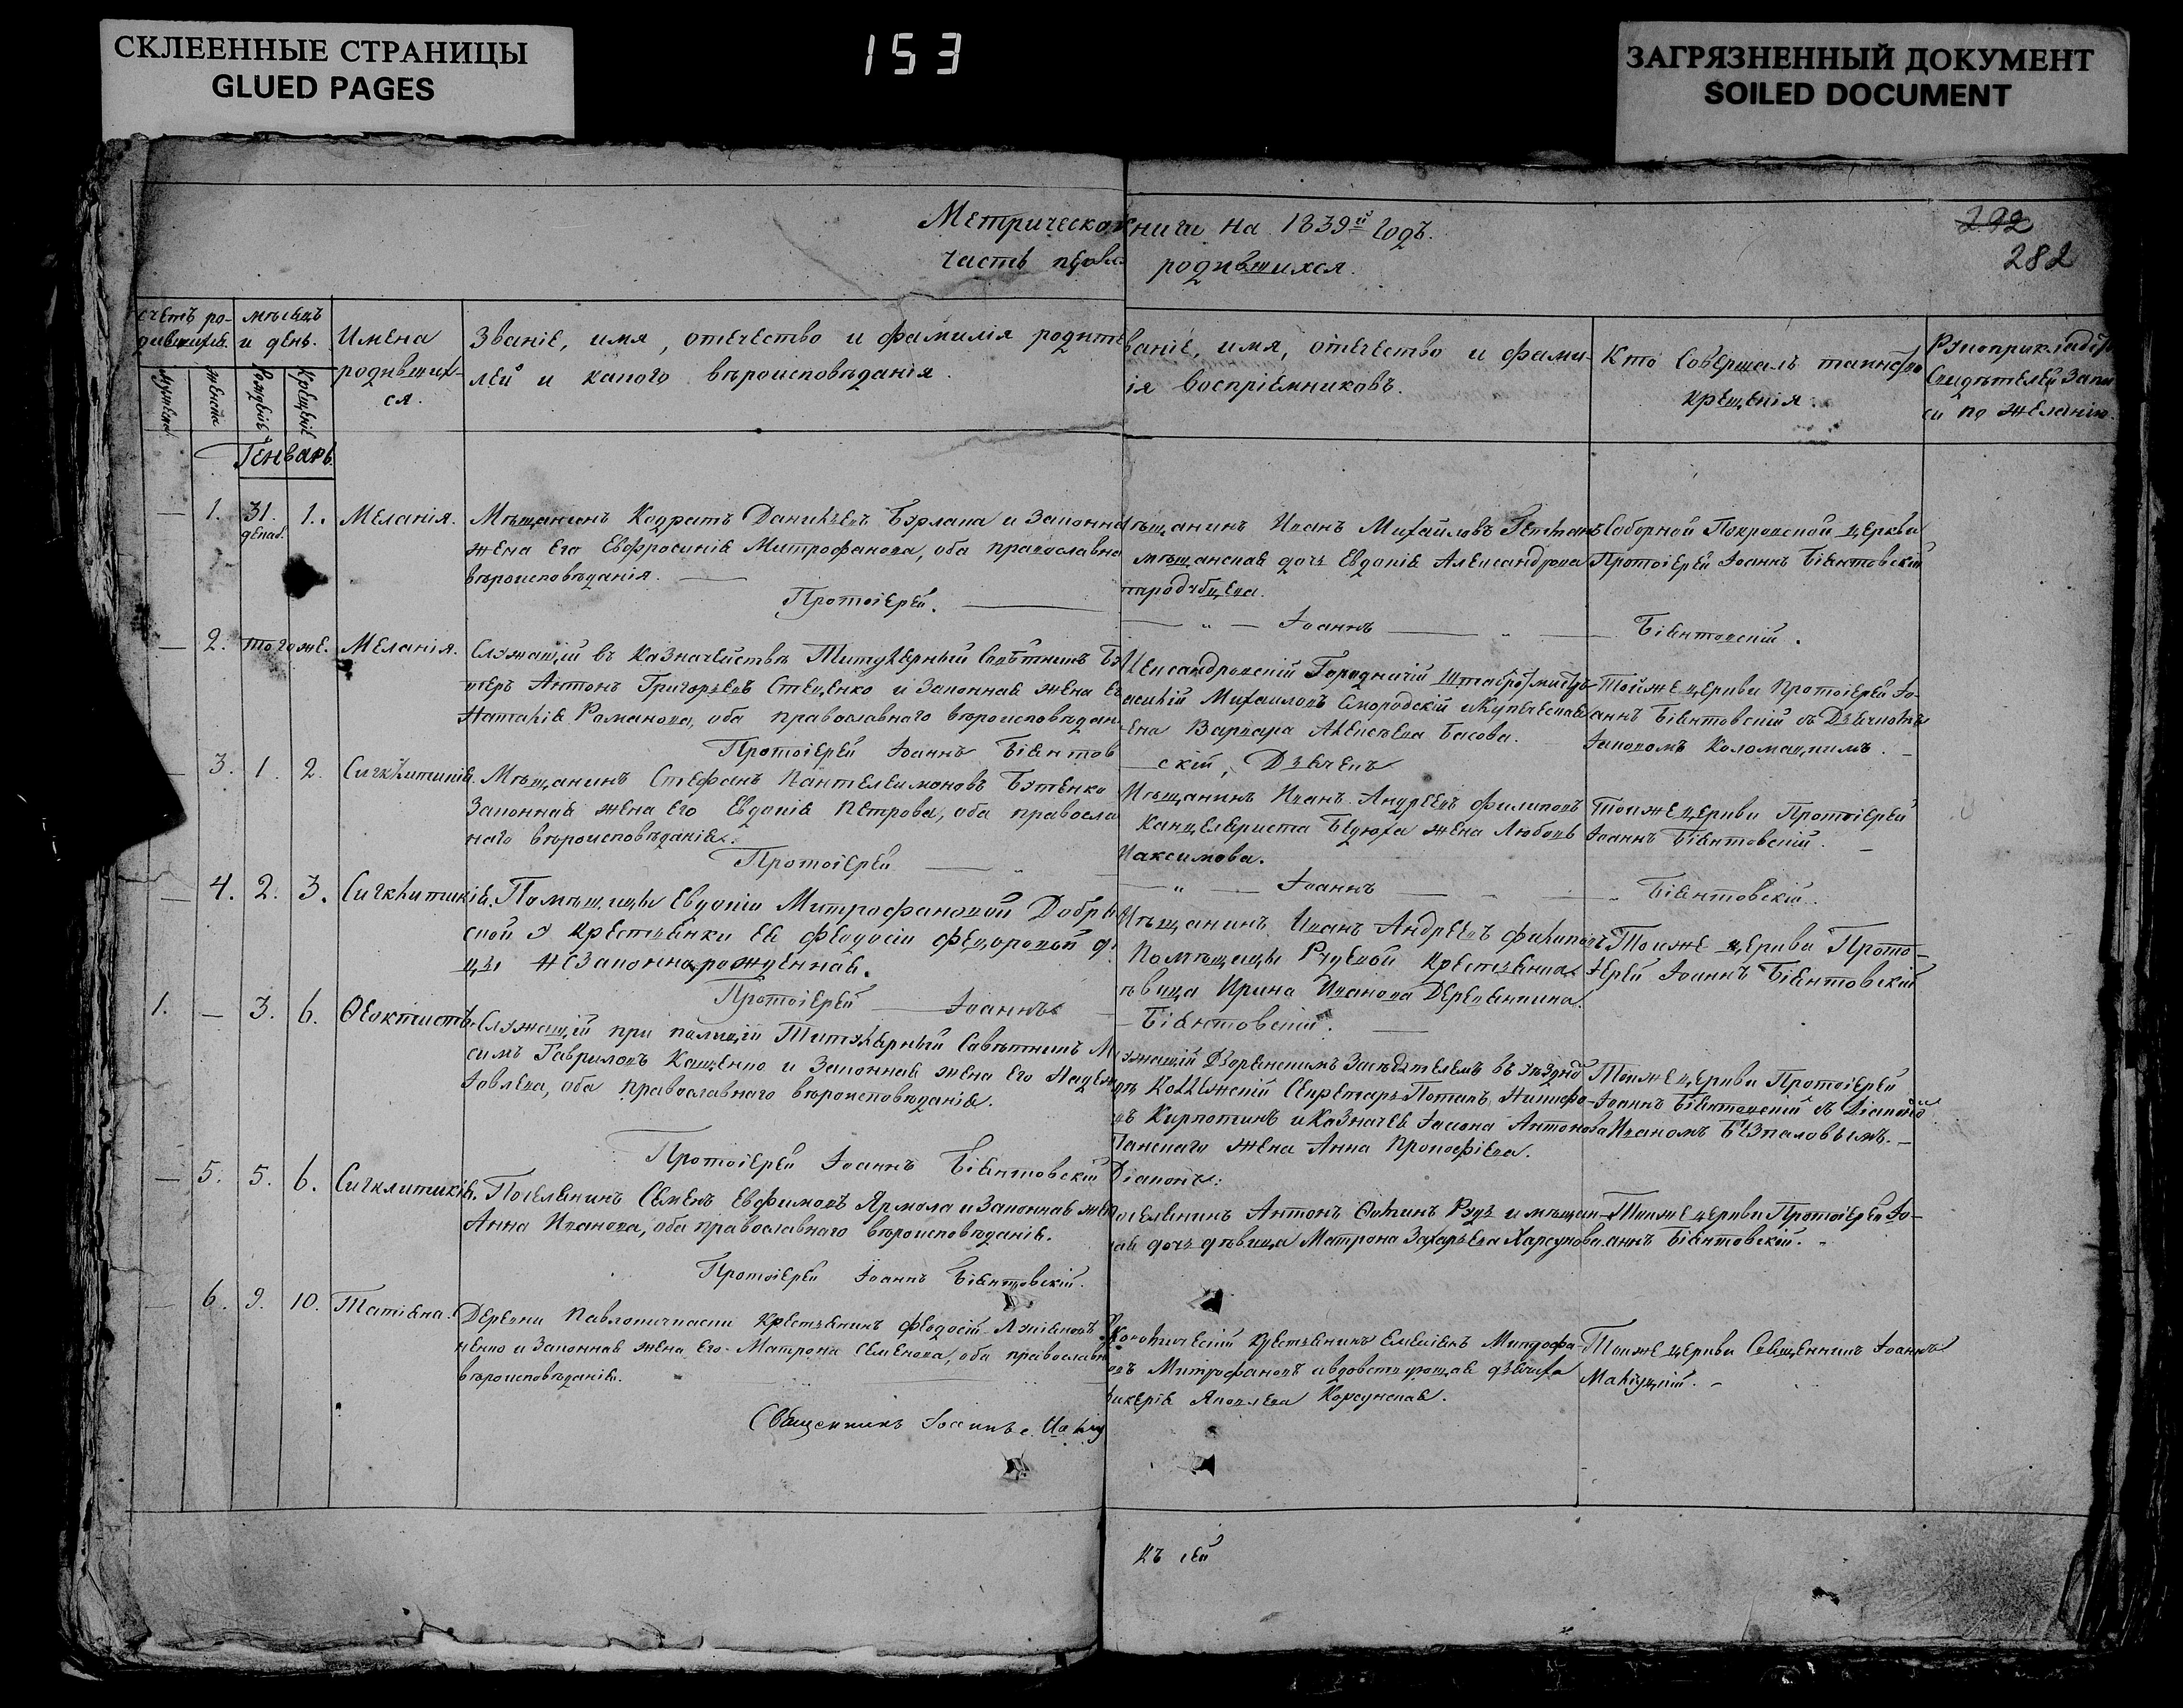 СКЛЕЕННЫЕ СТРАНИЦЫ
GLUED PAGES
153
ЗАГРЯЗНЕННЫЙ ДОКУМЕНТ
SOILED DOCUMENT
Метрическая книги на 1839й годъ.
часть первая родившихся.
292
282
счетъ ро-
дившихся.
мѣсяцъ
и день.
Имена
родивших-
ся.
Званіе, имя, отечество и фамилія родите
лей и какого вѣроисповѣданія.
ваніе, имя, отечество и фами-
ія воспріемниковъ.
Кто совершалъ таинство
крещенія.
Рукоприкладст
свидѣтелей запи
си по желанію.
мужеска
женска
Рожденіе
Крещеніе
Генварь
1. 31. декаб. 1. Меланія.
Мѣщанинъ Кодратъ Данилевъ Бурлака и законна
жена его Евфросинія Митрофанова, оба православна
вѣроисповѣданія.
Протоіерей.
ѣщанинъ Иванъ Михайловъ Гетман
мѣщанская дочь Евдокія Александрова
Соборной Покровской церкви
Протоіерей Іоаннъ Біянтовскій
Іоаннъ
Біянтовскій.
2. того же. Меланія.
Служащій въ казначействѣ Титулярный Совѣтникъ
Антонъ Григорьевъ Стеценко и законная жена е
Наталія Романова, оба православнаго вѣроисповѣдан
Протоіерей Іоаннъ Біянтов
Городничій
асилій Михаиловъ Смородскій и купеческая
ена Варвара Алексѣева Басова.
скій, Дьячекъ
Той же церкви Протоіерей Іо-
аннъ Біянтовскій съ Дьячкомъ
3. 1. 2. Сигклитикія.
Мѣщанинъ Стефанъ Пантелеимоновъ Бутенко
законная жена его Евдокія Петрова, оба правосла
наго вѣроисповѣданія.
Протоіерей
ѣщанинъ Иванъ Андреевъ Филиповъ
Канцеляриста Бедюха жена Любовь
Максимова.
Той же церкви Протоіерей
Іоаннъ Біянтовскій.
Іоаннъ
Біянтовскій.
4. 2. 3. Сигклитикія.
Помѣщицы Евдокіи Митрофановой Добря
ской у крестьянки ея Феодосіи Федоровой
незаконнорожденная.
Протоіерей Іоаннъ
ѣщанинъ Иванъ Андреевъ Филиповъ
Помѣщицы Рудевой крестьянка
ѣвица Ирина Иванова Деревянкина.
Біянтовскій.
Той же церкви Прото-
іерей Іоаннъ Біянтовскій
1. 3. 6. Ѳеоктистъ.
Служащій при полиціи Титулярный Савѣтникъ М
симъ Гавриловъ Кащенко и законная жена его Надеж
Іовлева, оба православнаго вѣроисповѣданія.
Протоіерей Іоаннъ Біянтовскій
ужащій Дворянскимъ Засѣдателемъ въ
Коллежскій Секретарь Потапъ
Кирпотинъ и Казначея Іасона Антонова
жена Анна Прокофіева.
Діаконъ:
Той же церкви Протоіерей
Іоаннъ Біянтовскій съ Діакономъ
Иваномъ Безпаловымъ.
5. 5. 6. Сигклитикія.
Поселянинъ Семенъ Евфимовъ Ярмола и законная жен
Анна Иванова, оба православнаго вѣроисповѣданія.
Протоіерей Іоаннъ Біянтовскій.
оселянинъ Антонъ Рудь и мѣщан-
ая дочь дѣвица Матрона Захарьева
Той же церкви Протоіерей Іо-
аннъ Біянтовскій.
6. 9. 10. Татіяна.
Деревни крестьянинъ Феодосій Лукіяновъ
ненко и законная жена его Матрона Семенова, оба православн
вѣроисповѣданія.
Священникъ Іоаннъ
крестьянинъ Емеліянъ Митрофа-
овъ Митрофановъ и вдовствующая дьячиха
ликерія Яковлева Корсунская.
Той же церкви Священникъ Іоаннъ
къ сей